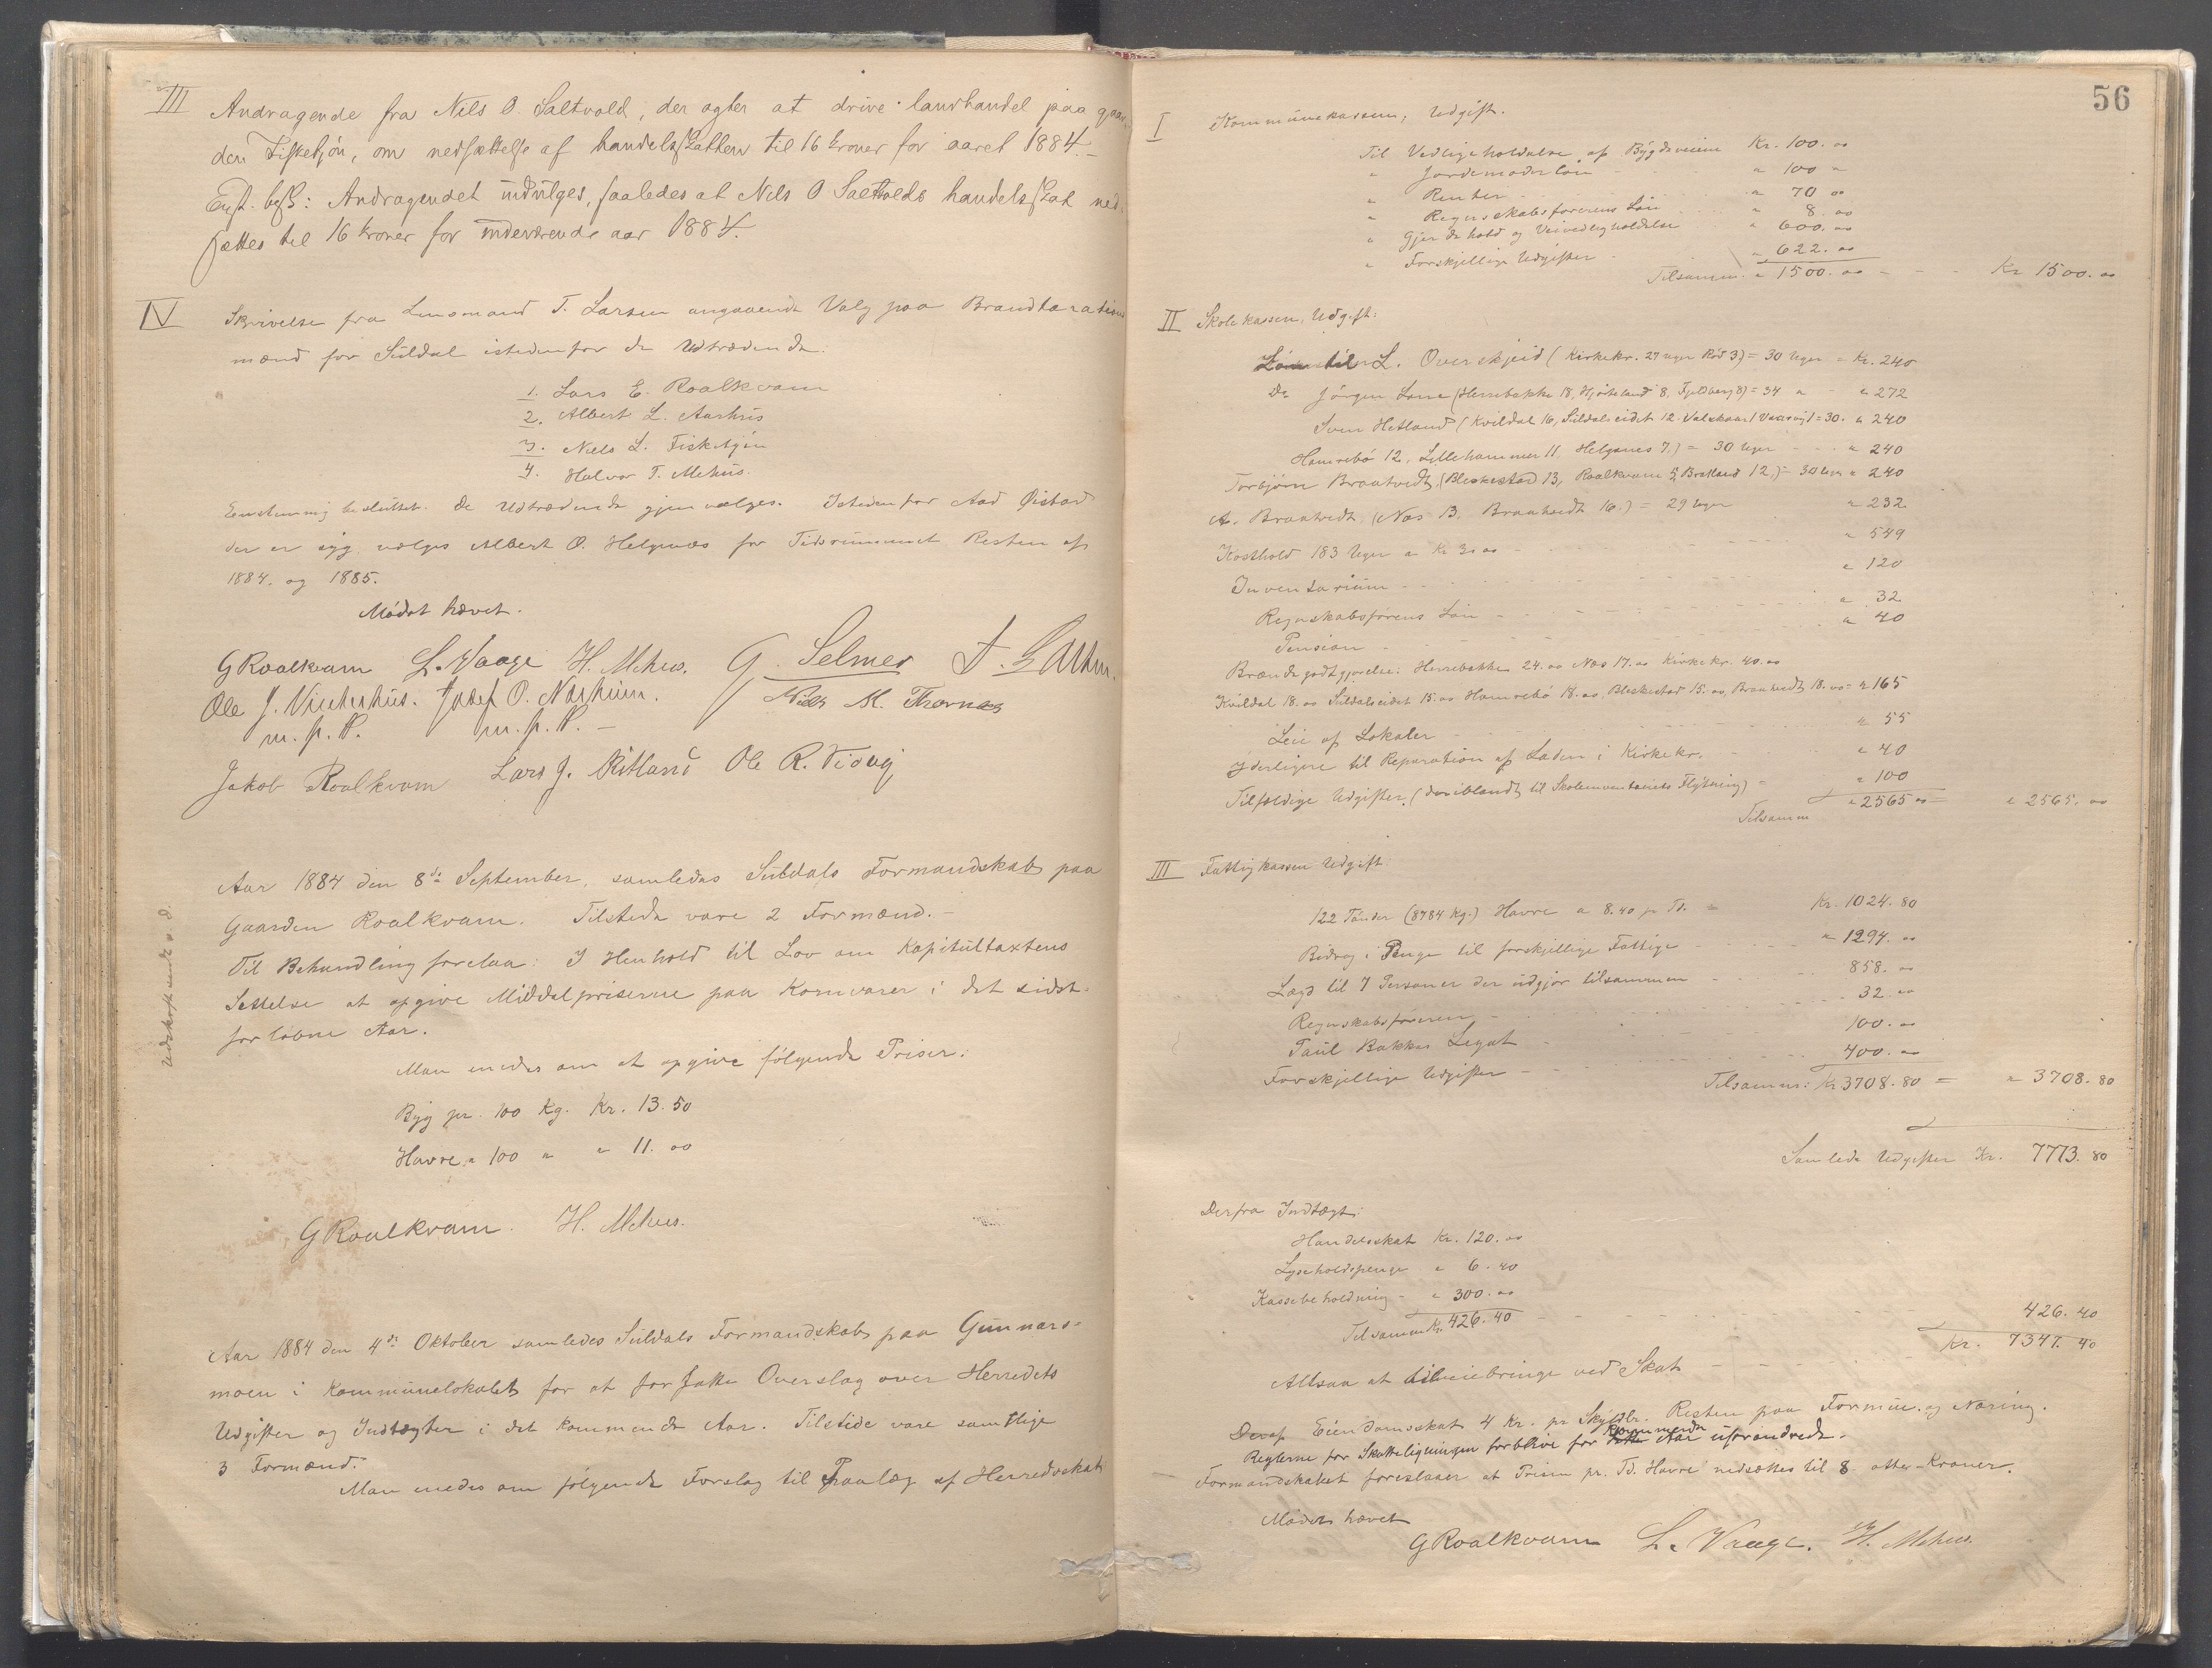 III Andragende fra Nils O. Saltvold, der agter at drive landhandel paa gaar-
den Fisketjøn, om nedsættelse af handelsskatten til 16 kroner for aaret 1884.-
Enst. besl: Andragendet indvilges, saaledes at Nils O Saltvolds handelsskat ned-
sættes til 16 kroner for indeværende aar 1884.
IV Skrivelse fra Lensmand T. Larsen angaaende Valg paa Brandtaxations
mænd for Suldal istedenfor de Udtrædende.
1. Lars E. Roalkvam
2. Albert L. Aarhus
3. Niels L. Fisketjøn
4. Halvor T. Mehus.
Eenstemmig besluttet. De Udtrædende gjenvælges. Istedenfor Aad Øistad
der er syg, vælges Albert O. Helgenæs for Tidsrummet Resten af
1884. og 1885.
Mødet hævet.
GRoalkvam L. Vaage H. Mehus. G. Selmer T. Larsen.
Ole J. Vinterhus. Josef O. Nærheim. Niels M. Thornæs
m. p. P. m. p. P. -
Jakob Roalkvam Lars J. Ritland Ole R. Vidvei
Aar 1884 den 8de September, samledes Suldals Formandskab paa
Gaarden Roalkvam. Tilstede vare 2 Formænd. -
Til Behandling forelaa: I Henhold til Lov om Kapitultaxtens
Settelse at opgive Middelpriserne paa Kornvarer i det sidst-
forløbne Aar.
Udskrift sendt s. D.
Man enedes om at opgive følgende Priser:
Byg pr. 100 Kg. Kr. 13.50
Havre " 100 " " 11.00
GRoalkvam. H. Mehus.
Aar 1884 den 4de Oktober samledes Suldals Formandskab paa Gunnars-
moen i Kommunelokalet for at forfatte Overslag over Herredets
Udgifter og Indtægter i det kommende Aar. Tilstede vare samtlige
3 Formænd.
Man enedes om følgende Forslag til Paalæg af Herredsskat
56
I Kommunekassen, Udgift.
Til Vedligeholdelse af Bygdeveiene Kr. 100.00
" Jordemoderløn " 100 "
" Renter " 70 00
" Regnskabsførerens Løn " 8.00
" Gjerdehold og Veivedligholdelse " 600.00
" Forskjellige Udgifter " 622.00
Tilsammen " 1500.00 - - Kr 1500.00
II Skolekassen, Udgift:
Løn til L. Overskjeid (Kirkekr. 27 uger Rød 3) = 30 Uger = Kr. 240
Do Jørgen Lone (Herrebakke 18, Hjorteland 8, Fjeldberg 8) = 34 " " 272
Sven Hetland (Kvildal 16, Suldalseidet 12. Valskaar (Vaavig) = 30. " 240
Hamrebø 12, Lillehammer 11 Helgenes 7.) = 30 Uger " 240
Torbjørn Braatvedt, (Bleskestad 13, Roalkvam 5, Bratland 12,) = 30 Uger " 240
A. Braatvedt, (Næs 13 Braatvedt 16.) = 29 Uger " 232
Kosthold 183 Uger a Kr 3.00 " 549
Inventarium " 120
Regnskabsførerens Løn " 32
Pension " 40
Brændegodtgjørelse: Herrebakken 24.00 Næs 17.00 Kirkekr. 40.00
Kvildal 18.00 Suldalseidet 15.00 Hamrebø 18.00, Bleskestad 15.00, Braatvedt, 18.00 = " 165
Leie af Lokaler " 55
Yderligere til Reparation af Laden i Kirkekr. " 40
Tilfældige Udgifter, (deriblandt til Skoleinventariets Flytning) = " 100
Tilsammen " 2565.00 = " 2565.00
III Fattigkassen Udgift
122 Tønder (8784 Kg.) Havre a 8.40 pr Td. = Kr. 1024.80
Bidrag i Penge til forskjellige Fattige " 1294.00
Lægd til 7 Personer der udgjør tilsammen 858.00
Regnskabsføreren 32.00
Paul Bakkes Legat 100.00
Forskjellige Udgifter 400.00
Tilsammen: Kr 3708.80 = " 3708.80
Samlede Udgifter Kr. 7773.80
Derfra Indtægt:
Handelsskat Kr. 120.00
Lyseholdspenge " 6.40
Kassebeholdning " 300.00
Tilsammen Kr. 426.40 426.40
Altsaa at tilveiebringe ved Skat Kr. 7347.40
Deraf Eiendomsskat 4 Kr. pr Skyldlr. Resten paa Formue og Næring.
Reglerne for Skatteligningen forblive for dette kommende Aar uforandrede.
Formandskabet foreslaaer at Prisen pr. Td. Havre nedsættes til 8 otte Kroner.
Mødet hævet
GRoalkvam L. Vaage. H. Mehus.